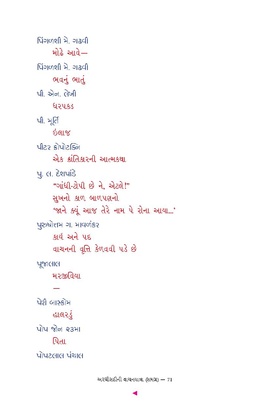 પિંગળશી મે. ગઢવી
મોઢે આવે—
પિંગળશી મે. ગઢવી
ભવનું ભાતું
પી. એન. લેખી
ધરપકડ
પી. મૂર્તિ
ઇલાજ
પીટર ક્રોપોટક્નિ
એક ક્રાંતિકારની આત્મકથા
પુ. લ. દેશપાંડે
“ગાંધી-ટોપી છે ને, એટલે!”
સુખનો કાળ બાળપણનો
‘જાને ક્યૂં આજ તેરે નામ પે રોના આયા...’
પુરુષોત્તમ ગ. માવળંકર
કાર્ય અને પદ
વાચનની વૃત્તિ કેળવવી પડે છે
પૂજાલાલ
મરજીવિયા
—
પેરી બાસ્કોમ
હાલરડું
પોપ જોન ૨૩મા
પિતા
પોપટલાલ પંચાલ
અરધી સદીની વાચનયાત્રા (સમગ્ર) — 73
◀